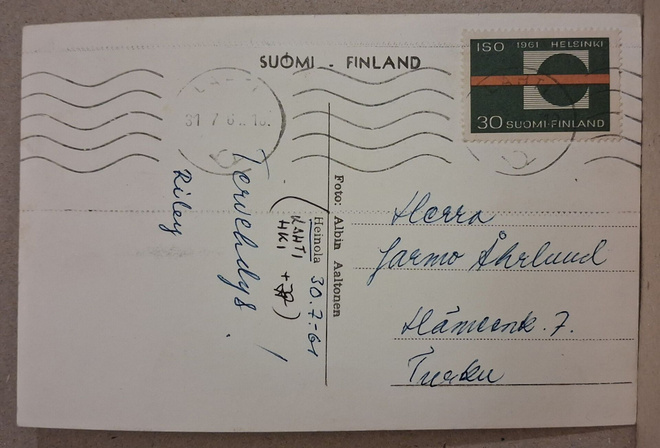 SUOMI - FINLAND
ISO 1961 HELSINKI
30 SUOMI-FINLAND
LAHTI
31 7 6
Foto: Albin Aaltonen
Heinola 30.7-61
(LAHTI
HKI
Tervehdys!
Riley
Herra
Jarmo Åhrlund
Hämeenk. 7.
Turku